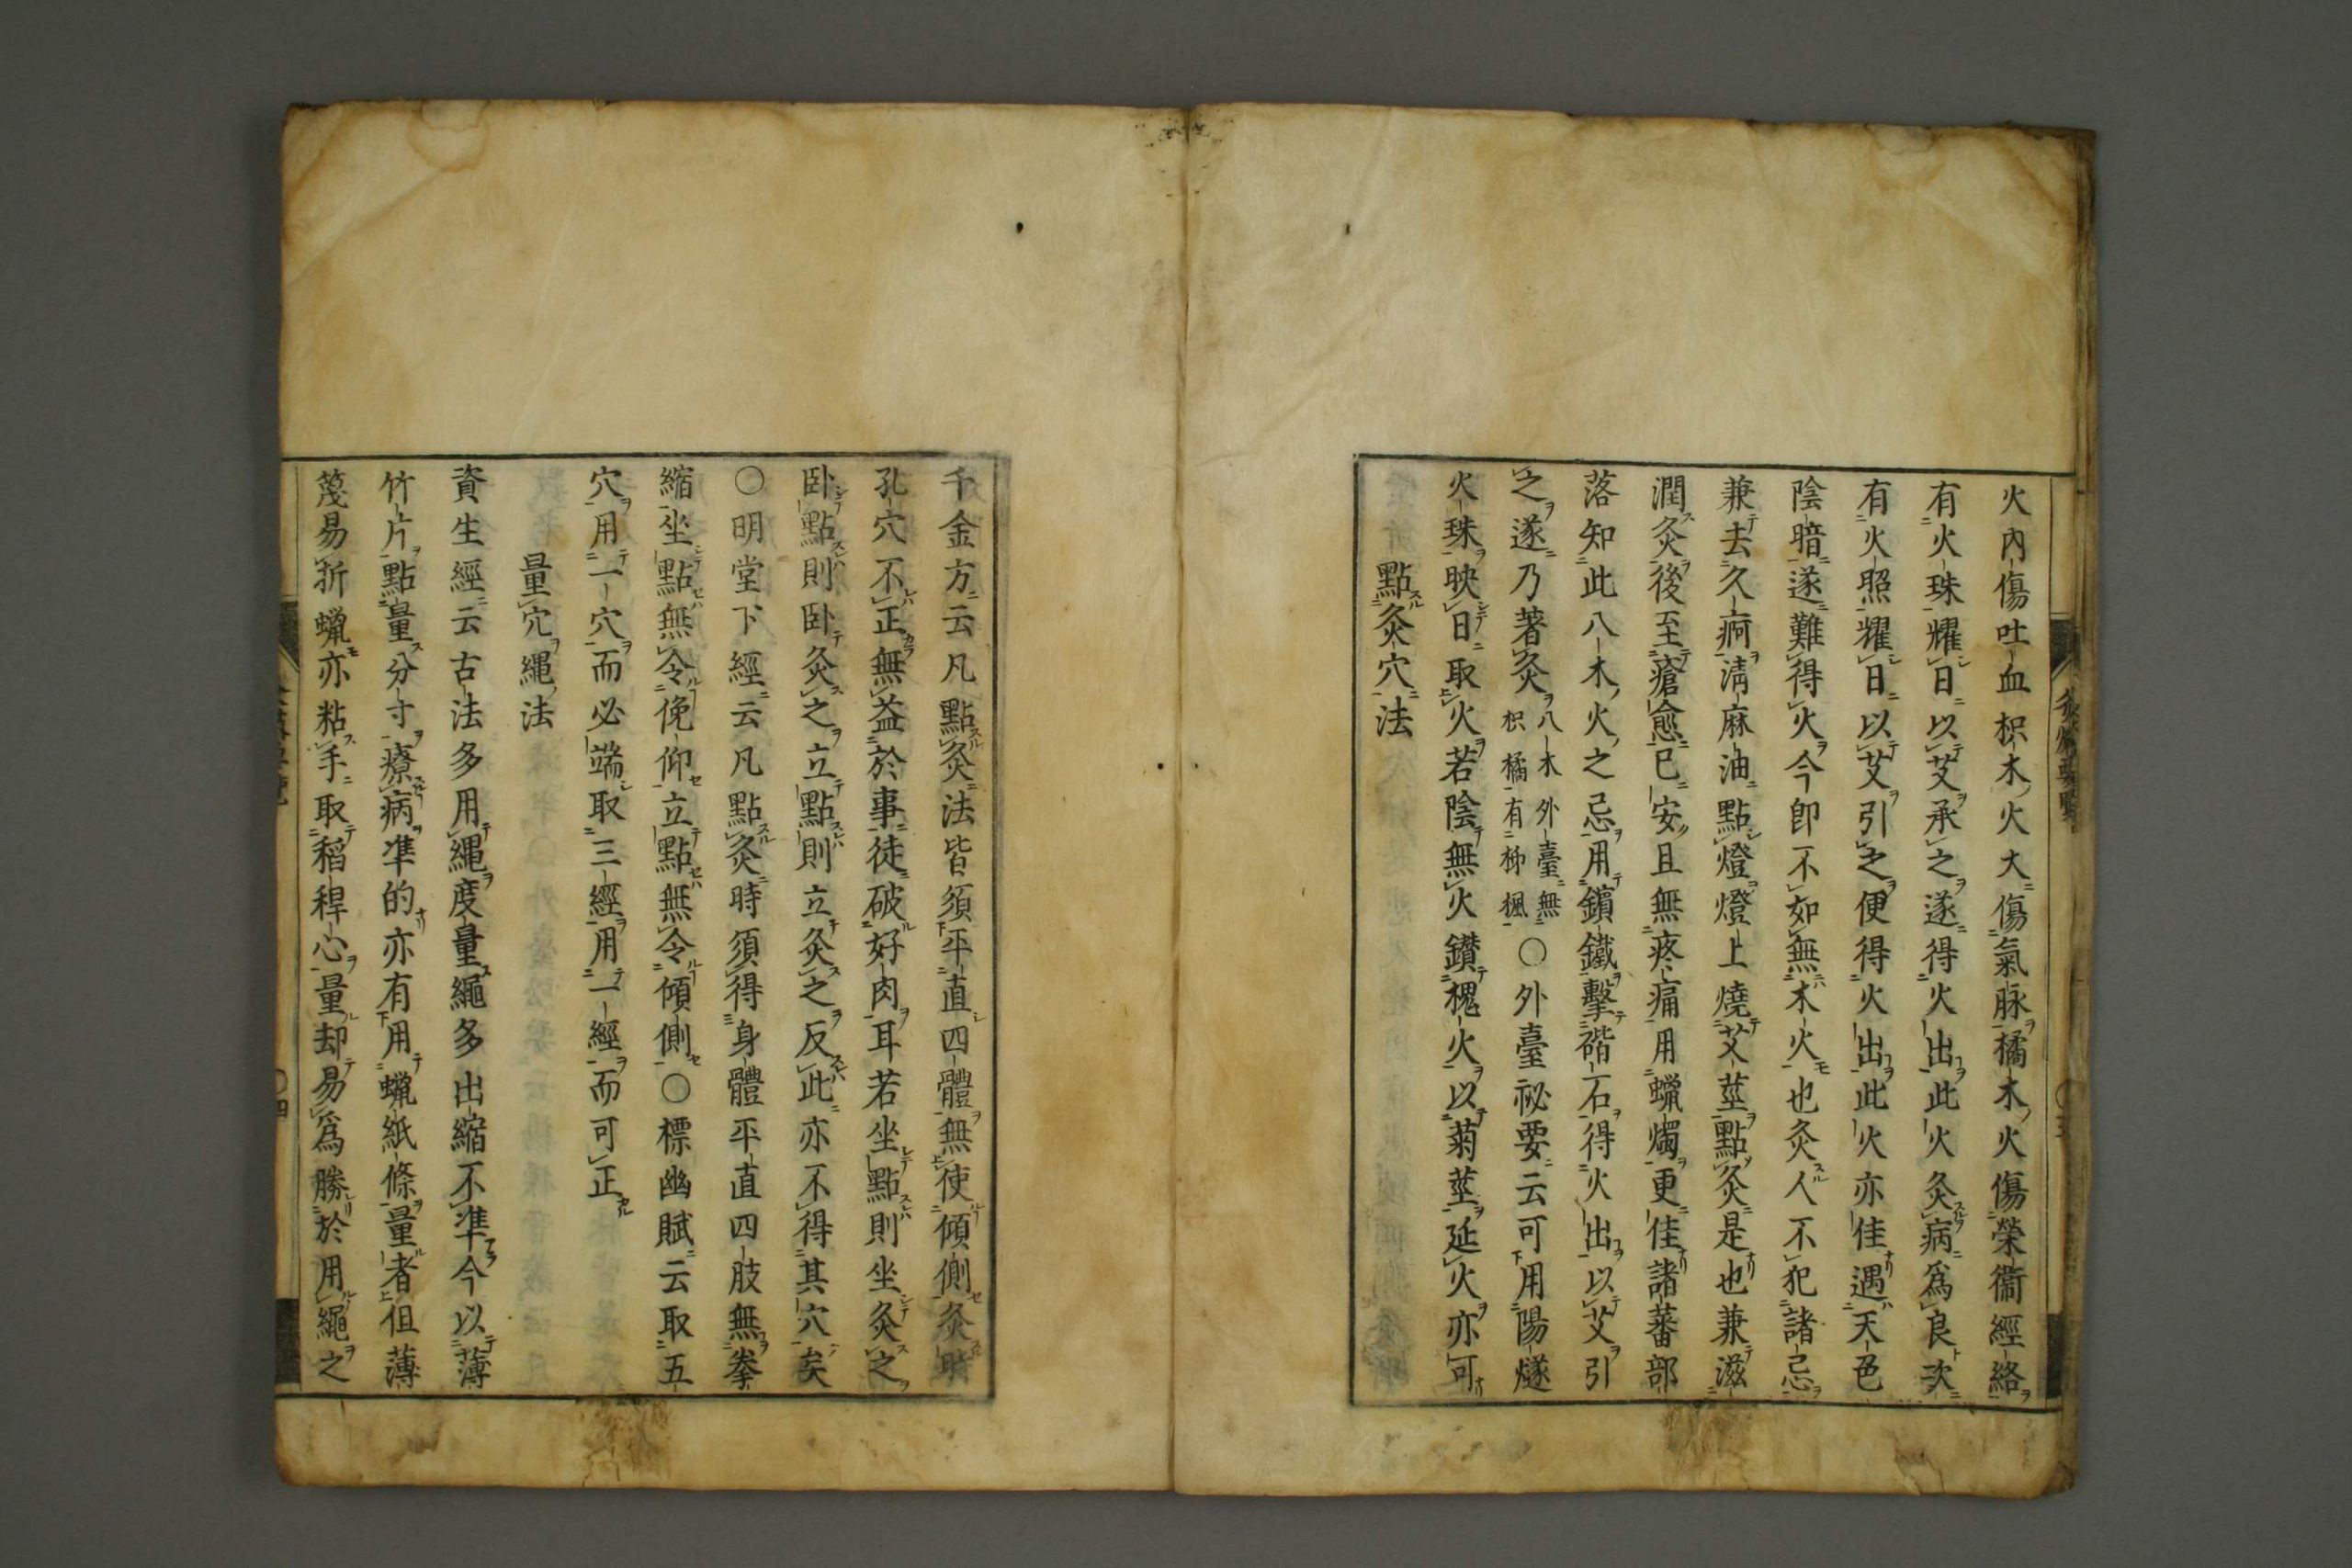 火內傷吐血枳木火大傷氣脉橘木火傷榮衞經絡
有火珠耀日以艾承之遂得火出此火灸病爲良次
有火照耀日以艾引之便得火出此火亦佳遇天色
陰暗遂難得火今卽不如無木火也灸人不犯諸忌
兼去久痾淸麻油點燈燈上燒艾莖點灸是也兼滋
潤灸後至瘡愈已安且無疼痛用蠟燭更佳諸蕃部
落知此八木火之忌用鑌鐵擊䃈石得火出以艾引
之遂乃著灸八木外臺無枳橘有柳楓〇外臺祕要云可用陽燧
火珠映日取火若陰無火鑽槐火以菊莖延火亦可
點灸穴法
千金方云凡點灸法皆須平直四體無使傾側灸時
孔穴不正無益於事徒破好肉耳若坐點則坐灸之
卧點則卧灸之立點則立灸之反此亦不得其穴矣
〇明堂下經云凡點灸時須得身體平直四肢無拳
縮坐點無令俛仰立點無令傾側〇標幽賦云取五
穴用一穴而必端取三經用一經而可正
量穴繩法
資生經云古法多用繩度量繩多出縮不準今以薄
竹片點量分寸療病準的亦有用蠟紙條量者但薄
篾易折蠟亦粘手取稻稈心量却易爲勝於用繩之